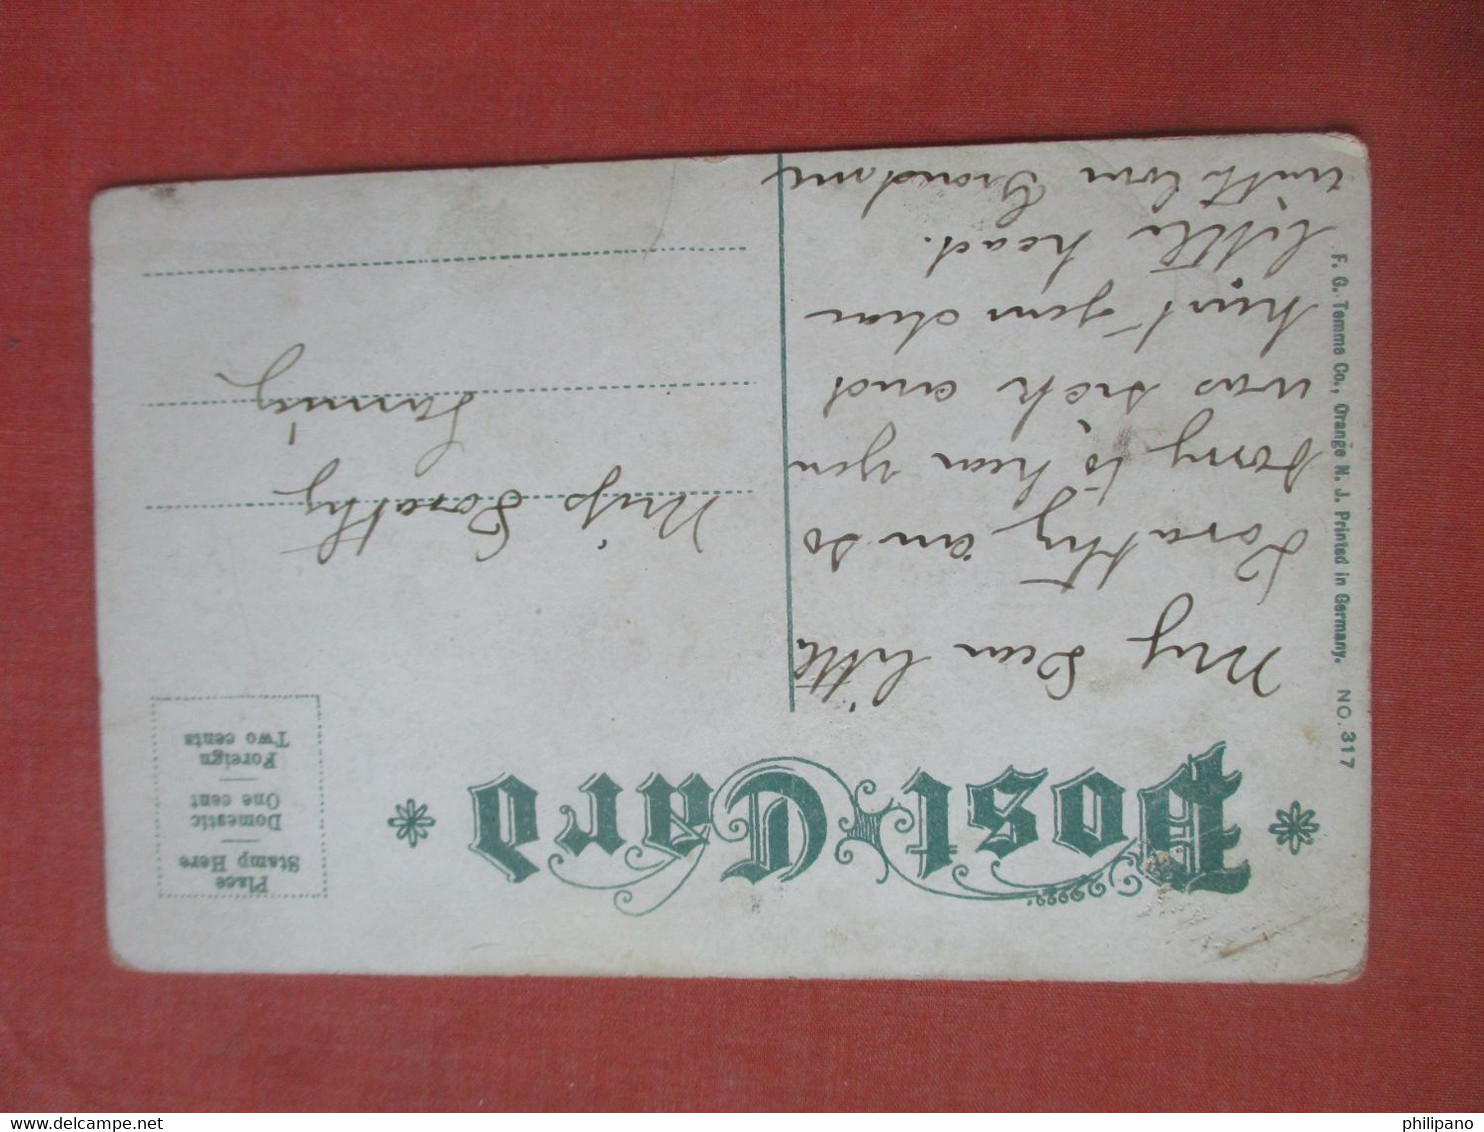 Post Card
Place
Stamp Here
Domestic
One cent
Foreign
Two cents
My Dear little
Dorathy am so
sorry to hear you
was sick and
hurt your dear
little head.
with love Grandma
Miss Dorathy
F. G. Temme Co., Orange N. J. Printed in Germany. NO. 317
delcampe.net
philipano